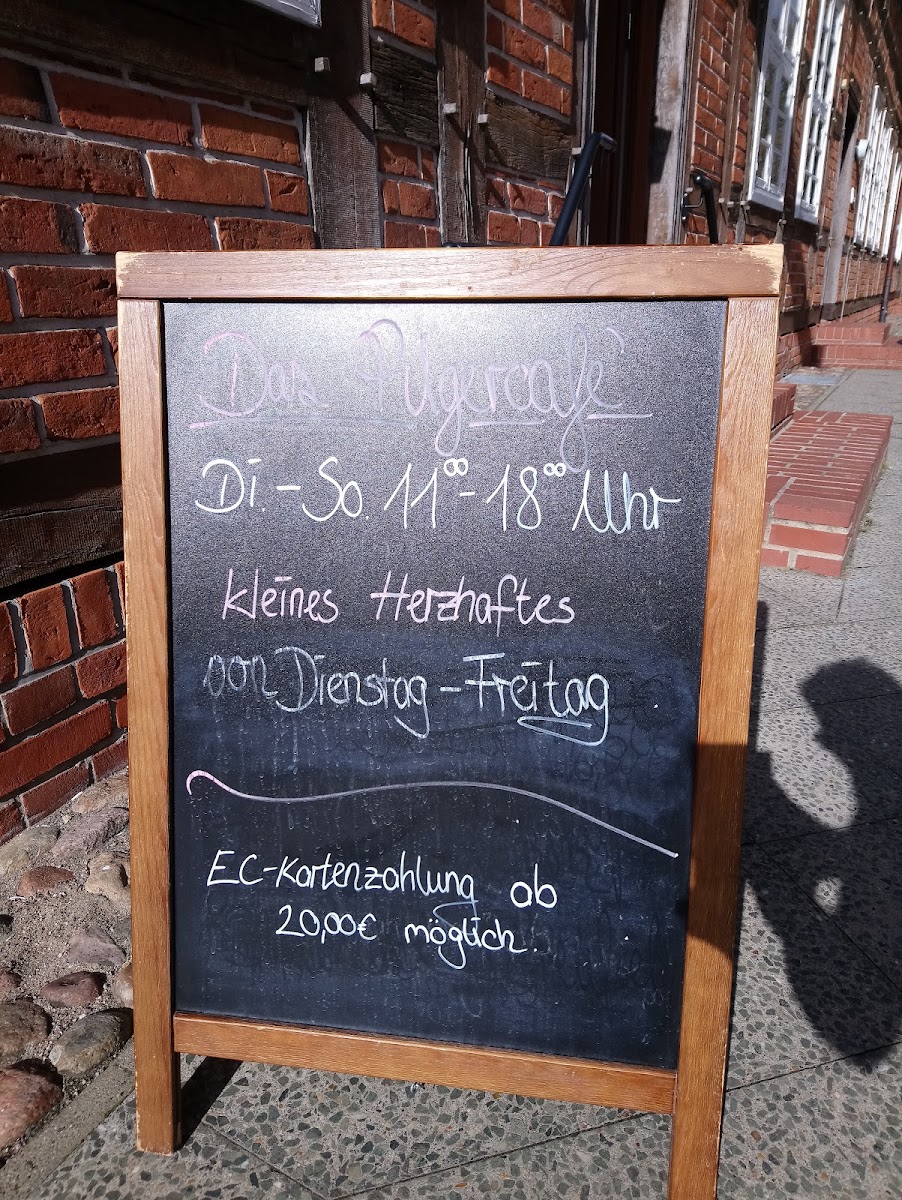 Das Pilgercafé
Di. - So. 11⁰⁰ - 18⁰⁰ Uhr
kleines Herzhaftes
von Dienstag - Freitag
EC-Kartenzahlung ab
20,00€ möglich.